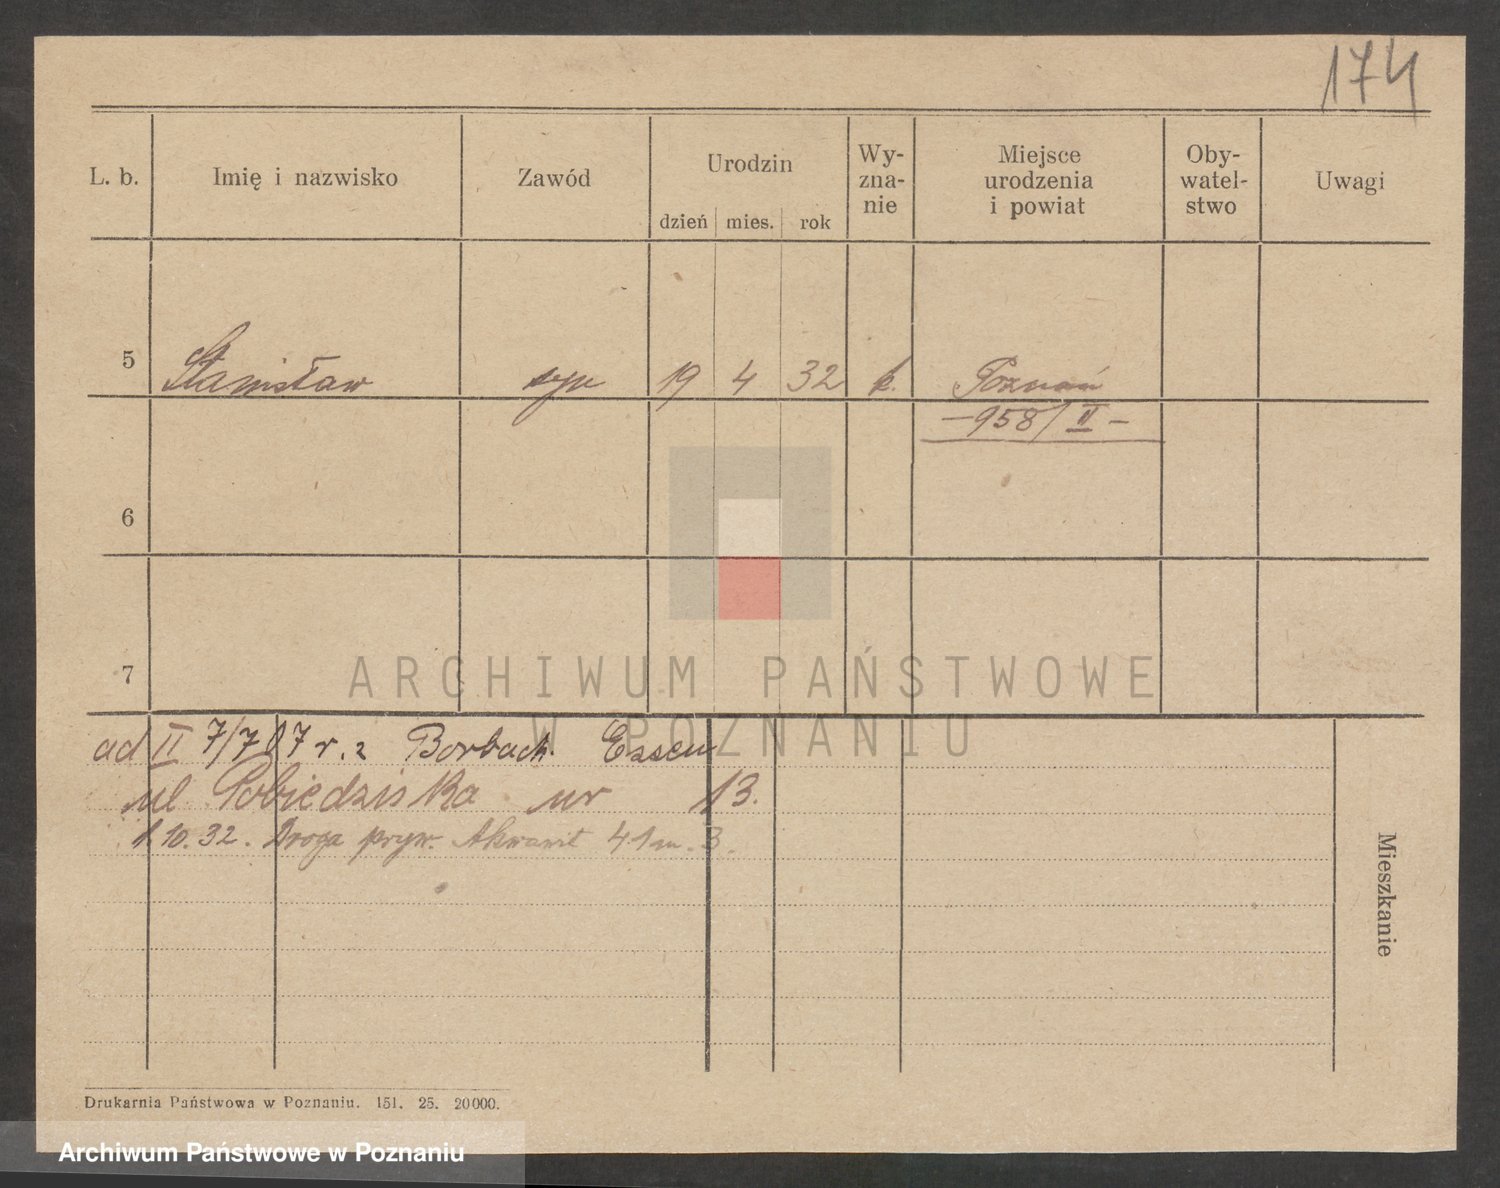 174
L. b. Imię i nazwisko Zawód Urodzin dzień mies. rok Wy- zna- nie Miejsce urodzenia i powiat Oby- watel- stwo Uwagi
5 Stanisław syn 19 4 32 k. Poznań
–958/II–
6
7
ARCHIWUM PAŃSTWOWE
W POZNANIU
ad II 7/7 07 r. z Borbach. Essen
ul Pobiedziska nr 13.
1.10.32. Droga pryw. Akwawit 41 m. 3.
Mieszkanie
Drukarnia Państwowa w Poznaniu. 151. 25. 20000.
Archiwum Państwowe w Poznaniu